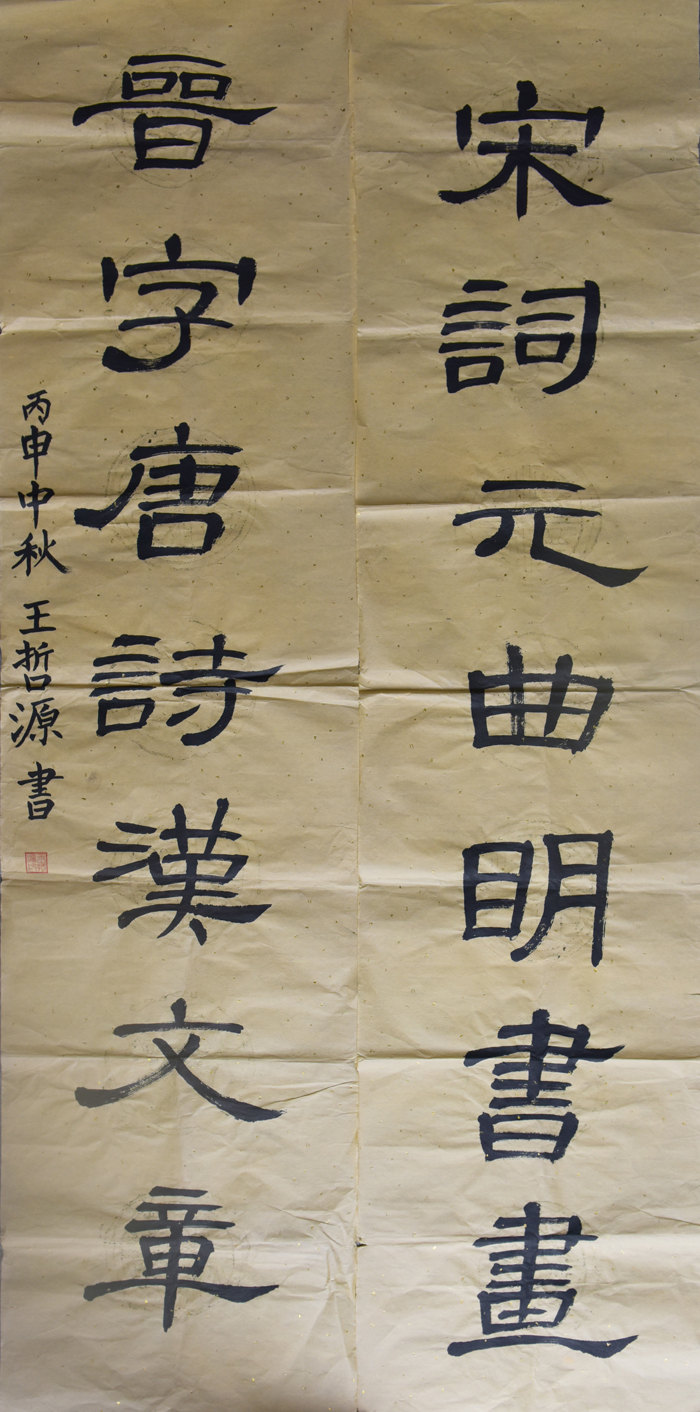 宋詞元曲明書畫
晉字唐詩漢文章
丙申中秋 王哲源書